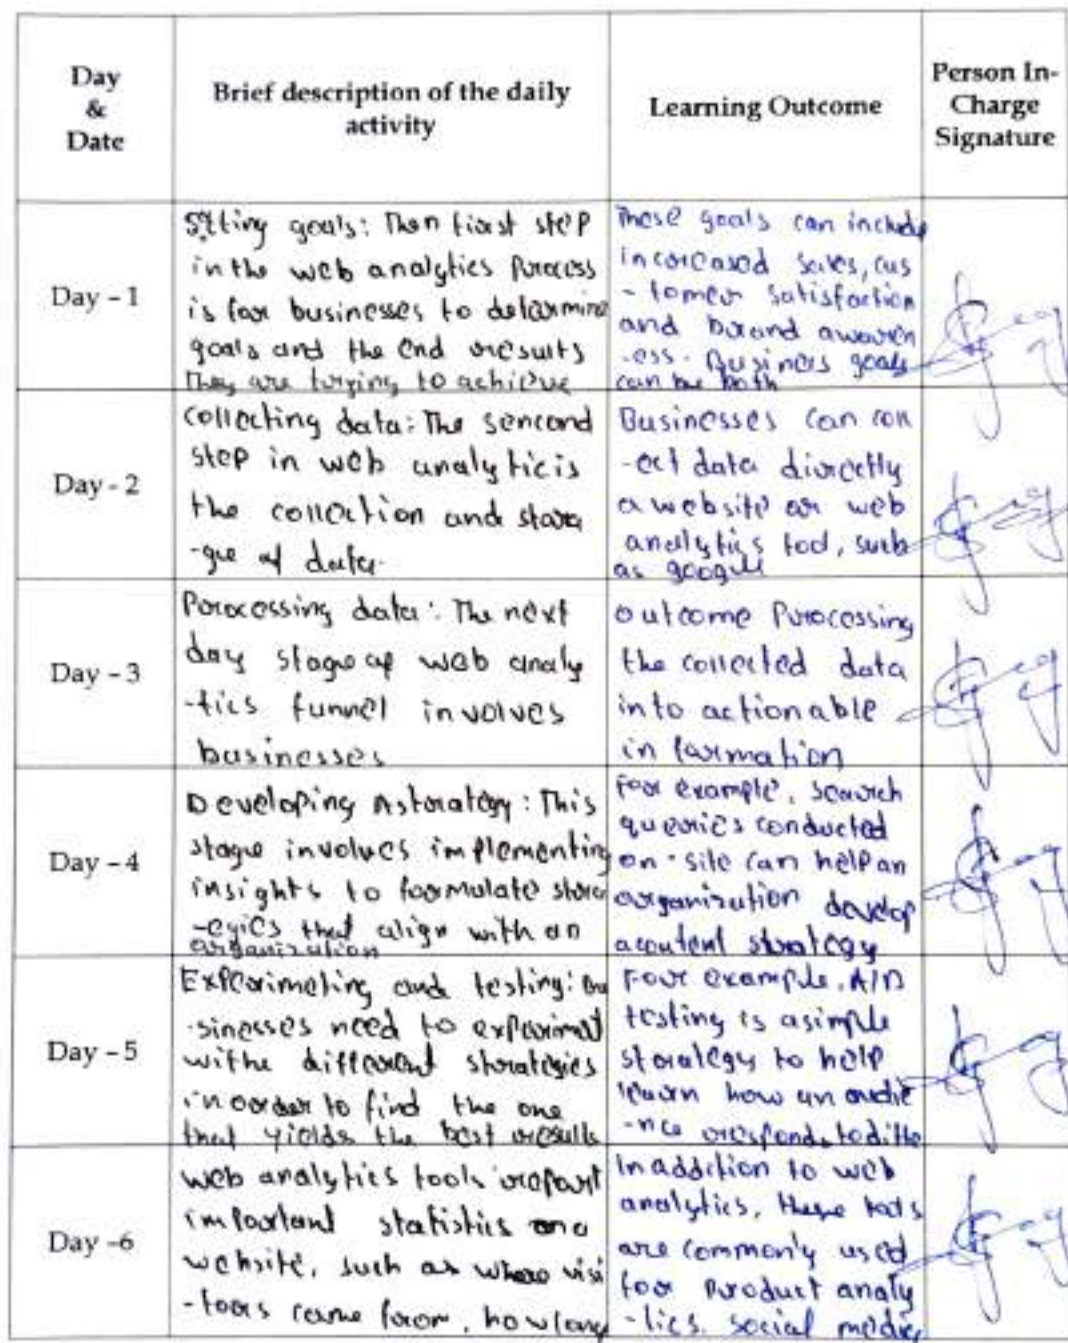 Day
&
Date
Brief description of the daily
activity
Learning Outcome
Person In-
Charge
Signature
Day - 1
Setting goals: Then first step
in the web analytics Process
is for businesses to determine
goals and the end results
They are trying to achieve
These goals can include
increased sales, cus
- tomer satisfaction
and brand awaren
-ess. Business goals
can be both
Day - 2
Collecting data: The sencond
step in web analytic is
the collection and stora
-ge of data.
Businesses can coll
-ect data directly
a website or web
analytics tool, such
as google
Day - 3
Processing data: The next
day stage of web analy
-tics funnel involves
businesses
outcome Processing
the collected data
into actionable
in formation
Day - 4
Developing A strategy: This
stage involves implementing
insights to formulate strat
-egies that align with an
organization
For example, search
queries conducted
on-site can help an
organization develop
a content strategy
Day - 5
Experimeting and testing: Bu
-sinesses need to experimet
withe different strategies
in order to find the one
that yields the best results
For example, A/B
testing is a simple
strategy to help
learn how an audie
-nce responds to diffe
Day -6
web analytics tools report
important statistics on a
website, such as where visi
-tors came from, how long
In addition to web
analytics, these tools
are commonly used
for Product analy
-tics, social media